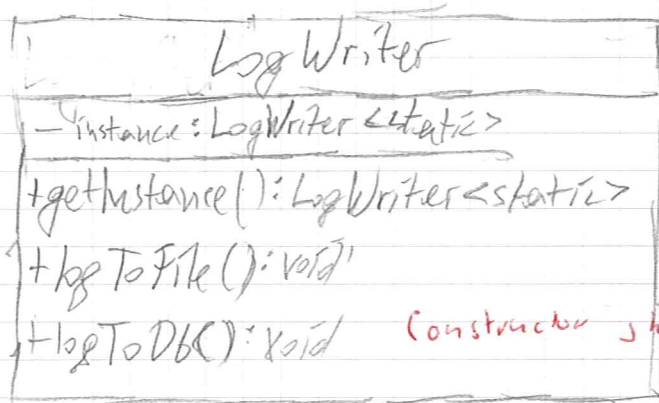 LogWriter
- instance: LogWriter <static>
+getInstance(): LogWriter <static>
+logToFile(): void
+logToDb(): void
Constructor